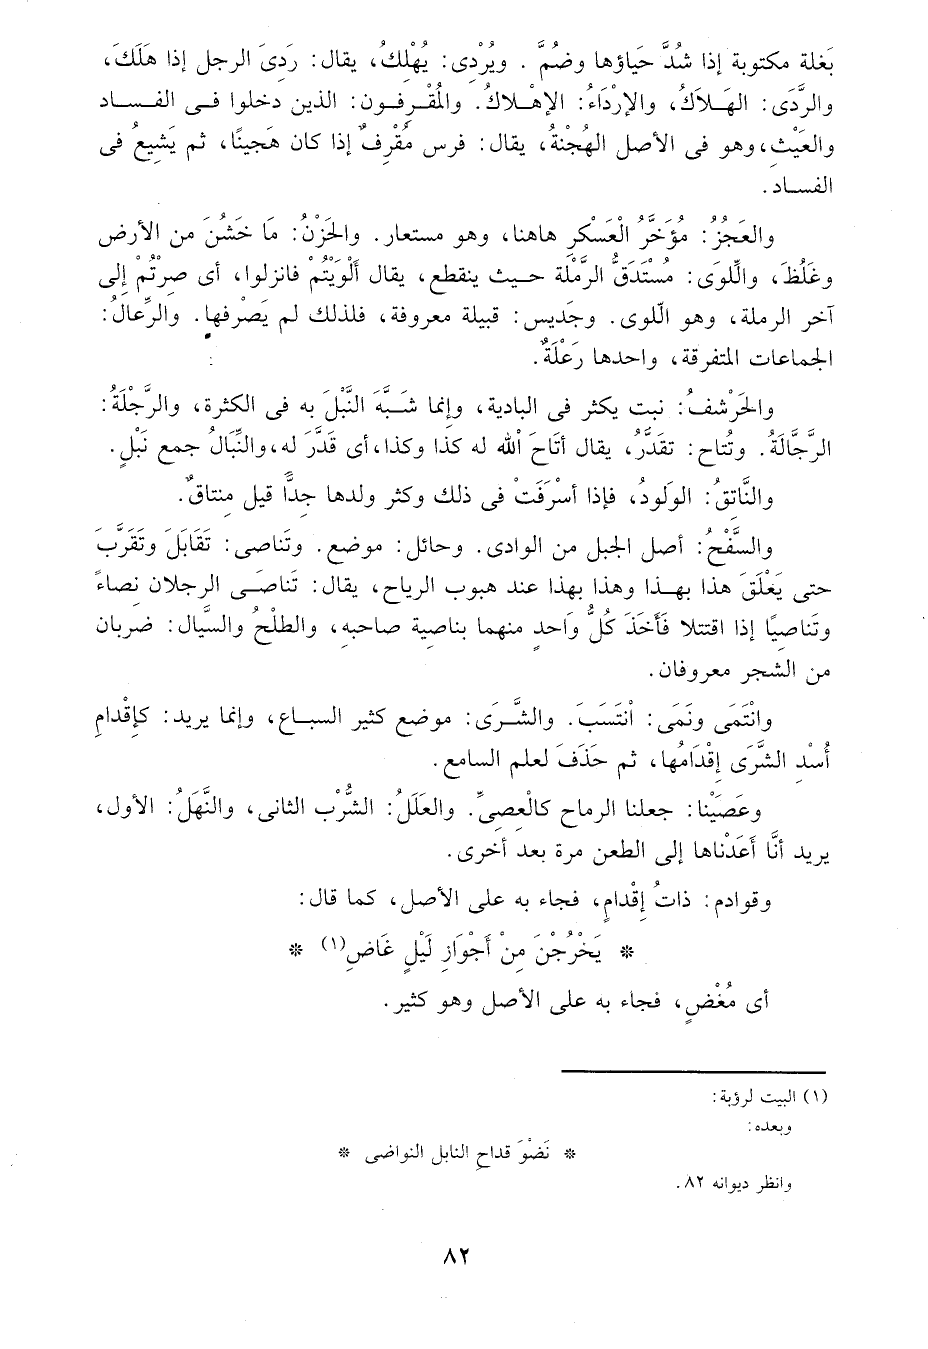 بَغلة مكتوبة إذا شُدَّ حَياؤها وضُمَّ . ويُرْدِى: يُهْلِكُ، يقال: رَدِىَ الرجل إذا هَلَكَ،
والرَّدَى: الهَلاَكُ، والإرْدَاءُ: الإهْلاكُ. والمُقْرِفون: الذين دخلوا فى الفساد
والعَيْث، وهو فى الأصل الهُجْنةُ، يقال: فرس مُقْرِفٌ إذا كان هَجينًا، ثم يَشيعُ فى
الفساد.
والعَجُزُ: مُؤَخَّرُ الْعَسْكَرِ هاهنا، وهو مستعار. والحَزْنُ: مَا خَشُنَ من الأرض
وغَلُظَ، واللِّوَى: مُسْتَدَقُّ الرَّمْلة حيث ينقطع، يقال أَلْوَيْتُمْ فانزلوا، أى صِرْتُمْ إلى
آخر الرملة، وهو اللّوى. وجَدِيس: قبيلة معروفة، فلذلك لم يَصْرِفها. والرِّعالُ:
الجماعات المتفرقة، واحدها رَعْلَةٌ.
والحَرْشَفُ: نبت يكثر فى البادية، وإنما شَبَّهَ النَّبْلَ به فى الكثرة، والرَّجْلَةُ:
الرَّجَّالَةُ. وتُتاح: تقَدَّرُ، يقال أتَاحَ ٱلله له كذا وكذا، أى قَدَّرَ له، والنِّبَالُ جمع نَبْلٍ.
والنَّاتِقُ: الوَلودُ، فإذا أسْرَفَتْ فى ذلك وكثر ولدها جِدًّا قيل مِنتاقٌ.
والسَّفْحُ: أصل الجبل من الوادى. وحائل: موضع. وتَناصى: تَقَابَلَ وتَقَرَّبَ
حتى يَعْلَقَ هذا بهذا وهذا بهذا عند هبوب الرياح، يقال: تَناصَى الرجلان نِصاءً
وتَناصِيًا إذا اقتتلا فَأَخَذَ كُلُّ وَاحدٍ منهما بناصية صاحبه، والطلْحُ والسَّيال: ضربان
من الشجر معروفان.
وانْتَمَى ونَمَى: انْتَسَبَ. والشَّرَى: موضع كثير السباع، وإنما يريد: كَإِقْدامِ
أُسْدِ الشَّرَى إقْدَامُها، ثم حَذَفَ لعلم السامع.
وعَصَيْنا: جعلنا الرماح كالْعِصِىِّ. والعَلَلُ: الشُّرْب الثانى، والنَّهَلُ: الأول،
يريد أنَّا أَعَدْناها إلى الطعن مرة بعد أخرى.
وقوادم: ذاتُ إقْدامٍ، فجاء به على الأصل، كما قال:
* يَخْرُجْنَ مِنْ أَجْوَازِ لَيْلٍ غَاضِ(١) *
أى مُغْضٍ، فجاء به على الأصل وهو كثير.
(١) البيت لرؤبة:
وبعده:
* نَضْوَ قداحِ النابل النواضى *
وانظر ديوانه ٨٢.
٨٢